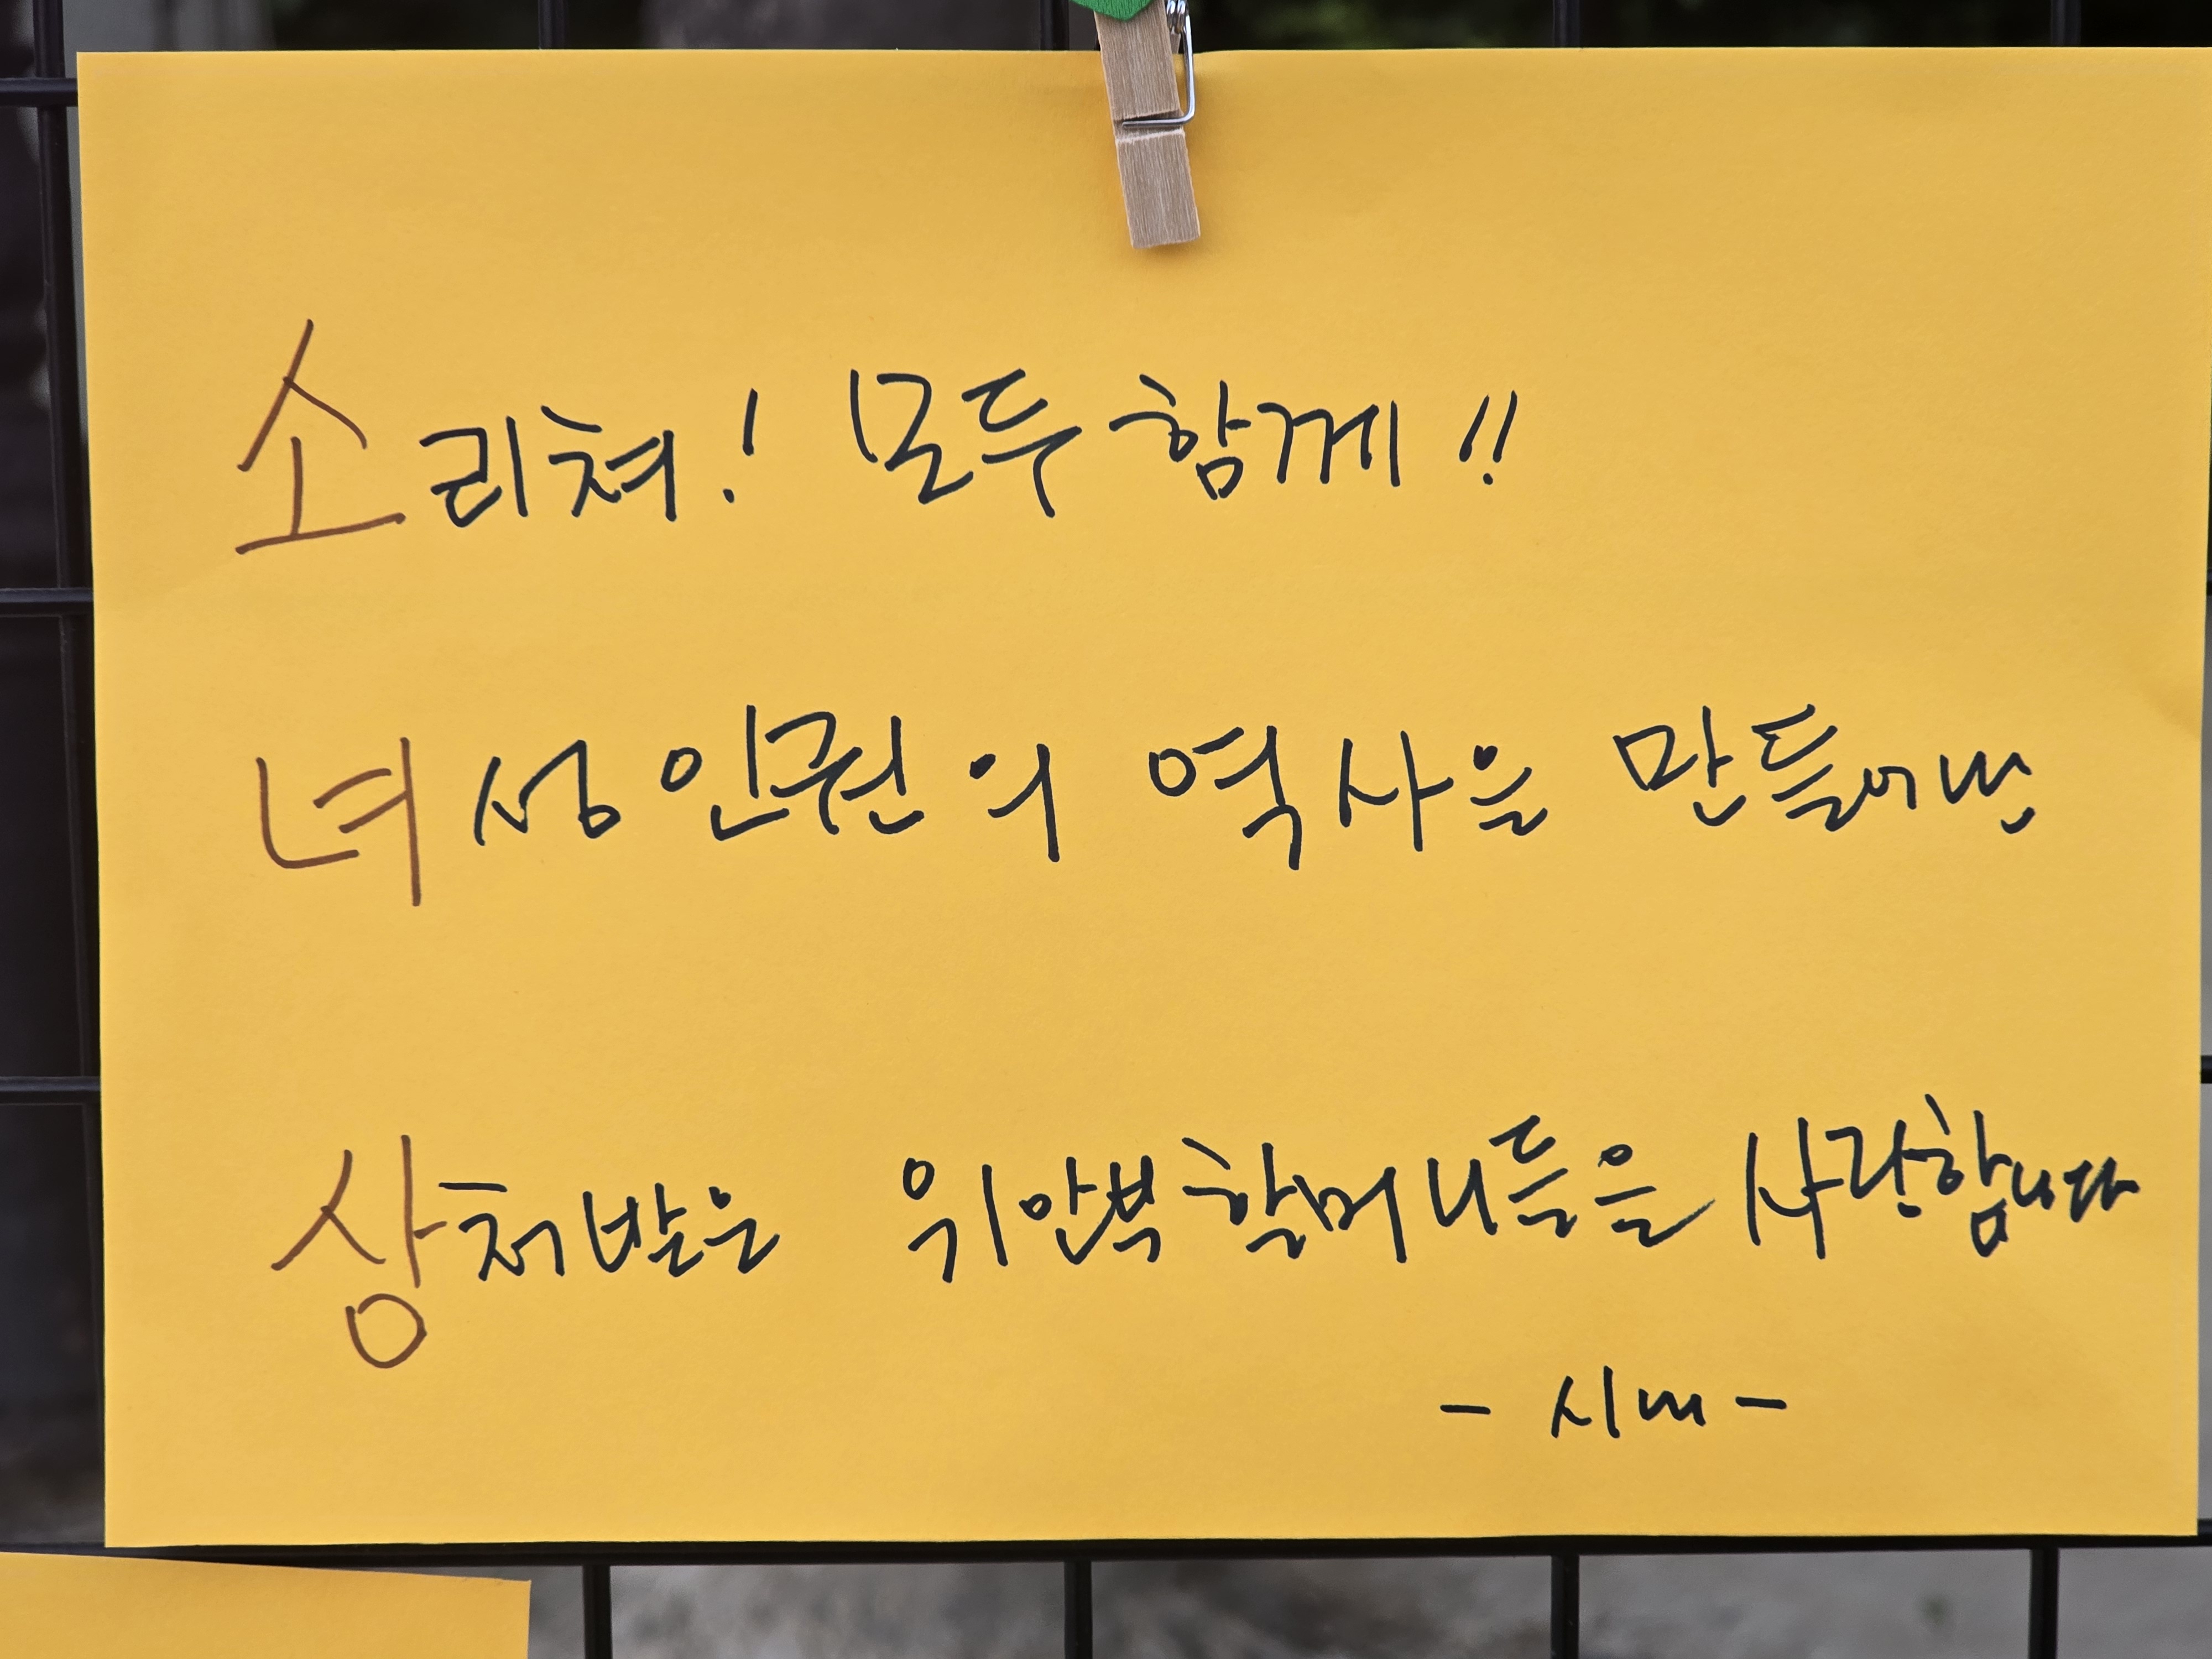 소리쳐! 모두 함께!!
녀성인권의 역사을 만들어낸
상처받은 위안부할머니들을 사랑합니다